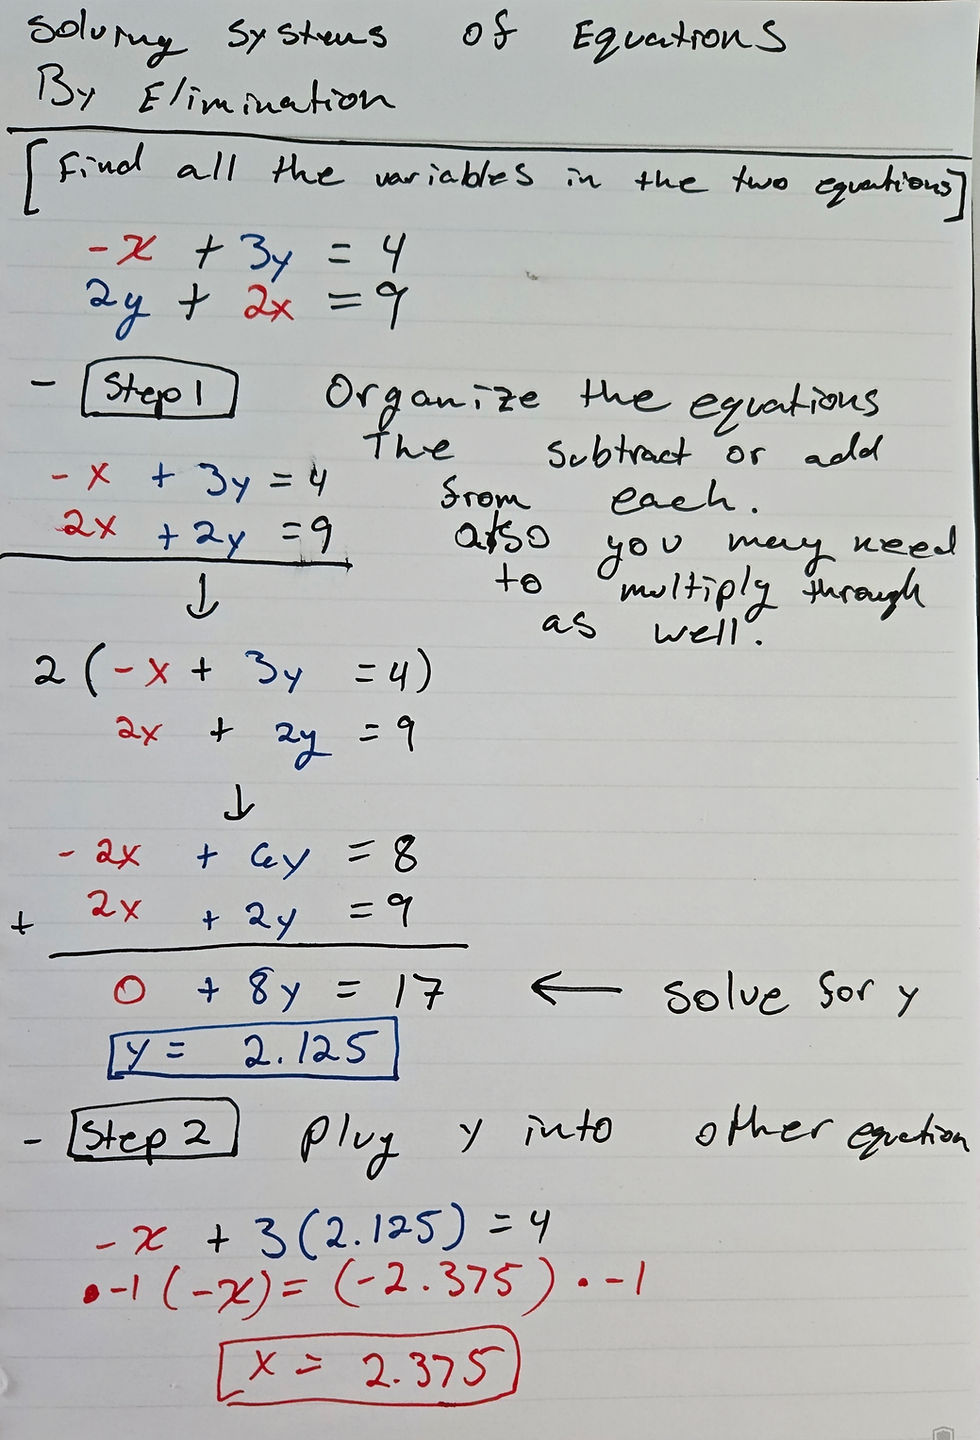 Solving Systems of Equations
By Elimination
[Find all the variables in the two equations]
-x + 3y = 4
2y + 2x = 9
- Step 1 Organize the equations
The subtract or add
from each.
also you may need
to multiply through
as well.
-x + 3y = 4
2x + 2y = 9
↓
2(-x + 3y = 4)
2x + 2y = 9
↓
-2x + 6y = 8
+ 2x + 2y = 9
0 + 8y = 17 ← solve for y
y = 2.125
- Step 2 Plug y into other equation
-x + 3(2.125) = 4
•-1(-x) = (-2.375)•-1
x = 2.375